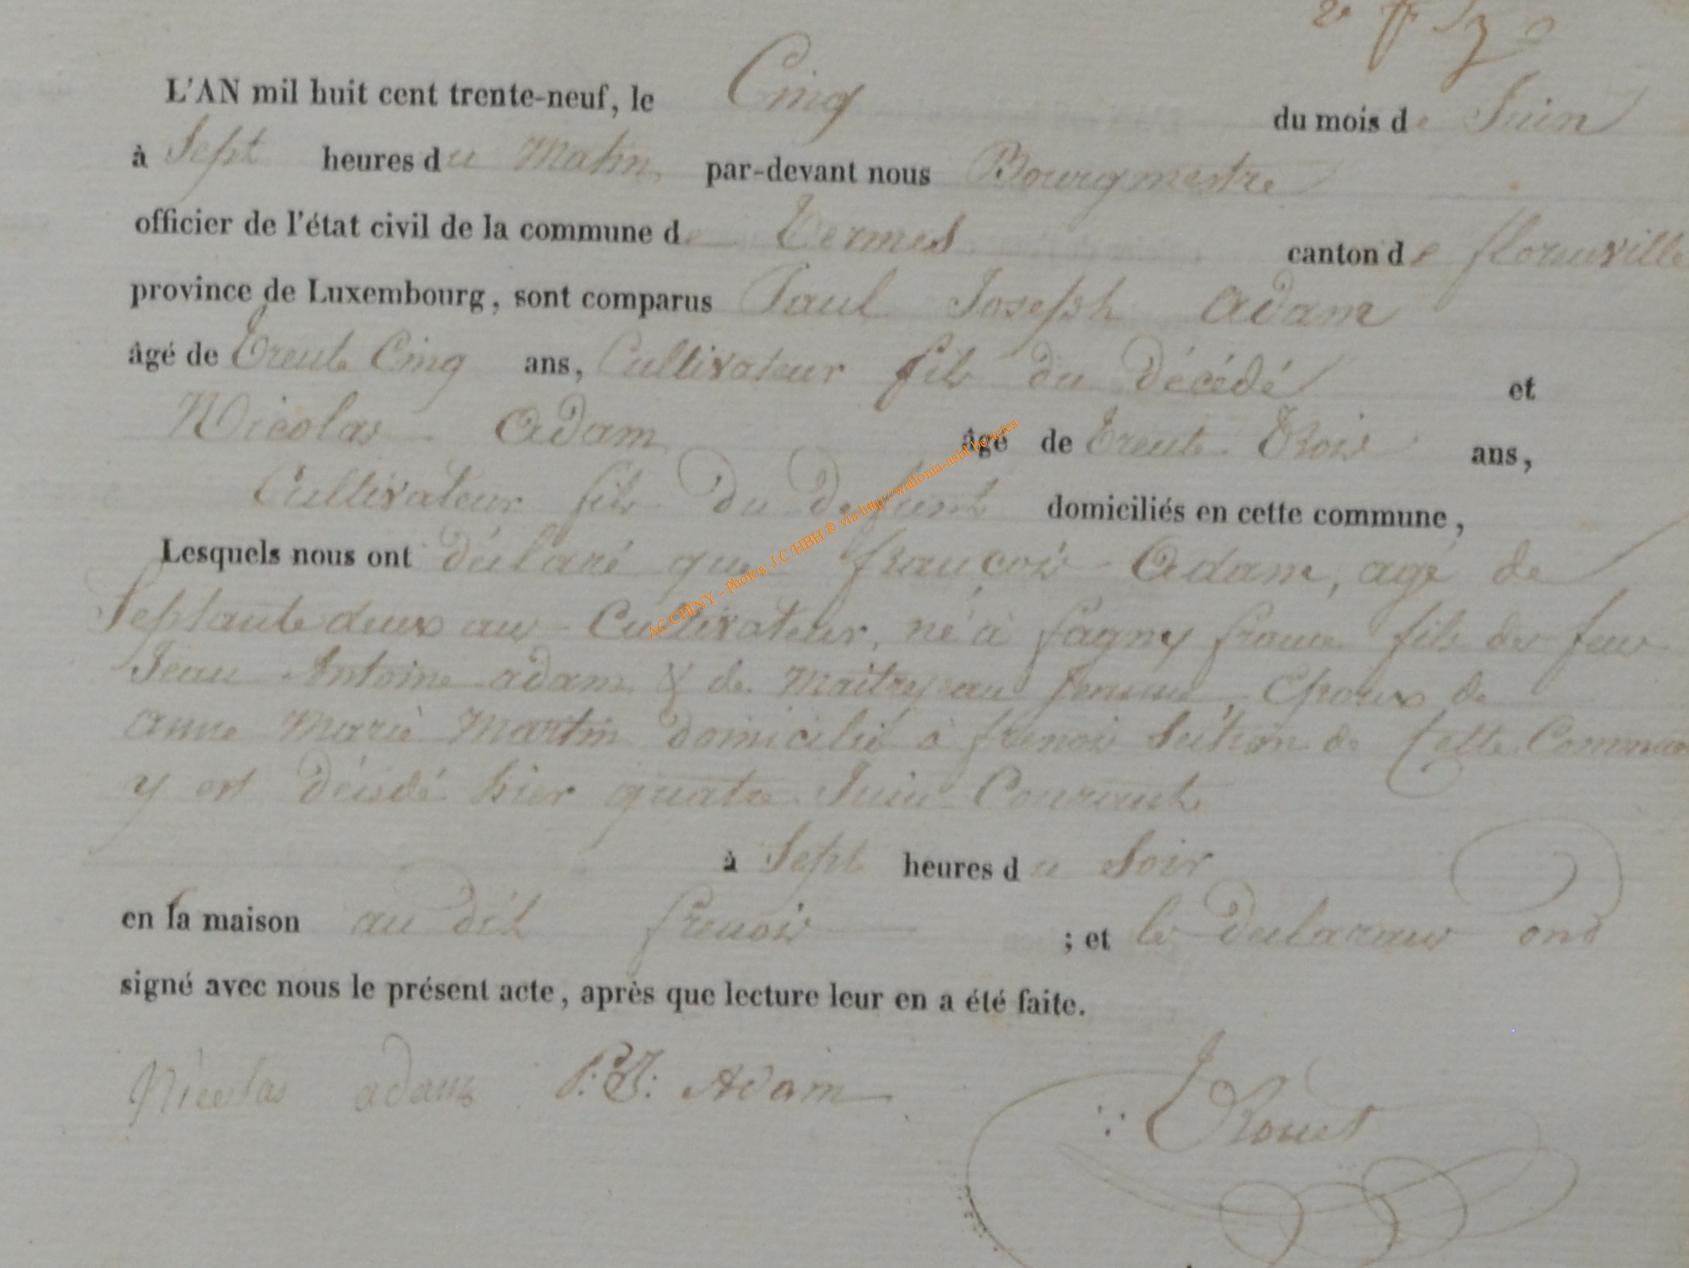 L'AN mil huit cent trente-neuf, le Cinq du mois de Juin
à Sept heures du Matin par-devant nous Bourgmestre
officier de l'état civil de la commune de Termes canton de florenville
province de Luxembourg, sont comparus Paul Joseph Adam
âgé de Trente Cinq ans, Cultivateur fils du décédé et
Nicolas Adam âgé de Trente Trois ans,
Cultivateur fils du defunt domiciliés en cette commune,
Lesquels nous ont déclaré que françois Adam, agé de
Septante deux ans Cultivateur, né à fagny france fils de feu
Jean Antoine adam & de femme, Epoux de
anne Marie Martin domicilié à frenois Section de Cette Commune
y est décédé hier quatre Juin Courant
à Sept heures du Soir
en la maison au dit frenois ; et les declarans ont
signé avec nous le présent acte, après que lecture leur en a été faite.
Nicolas adam P: J: Adam
AC CHINY - Photos J C HBH ® via http://wallonia-asbl.be/actes